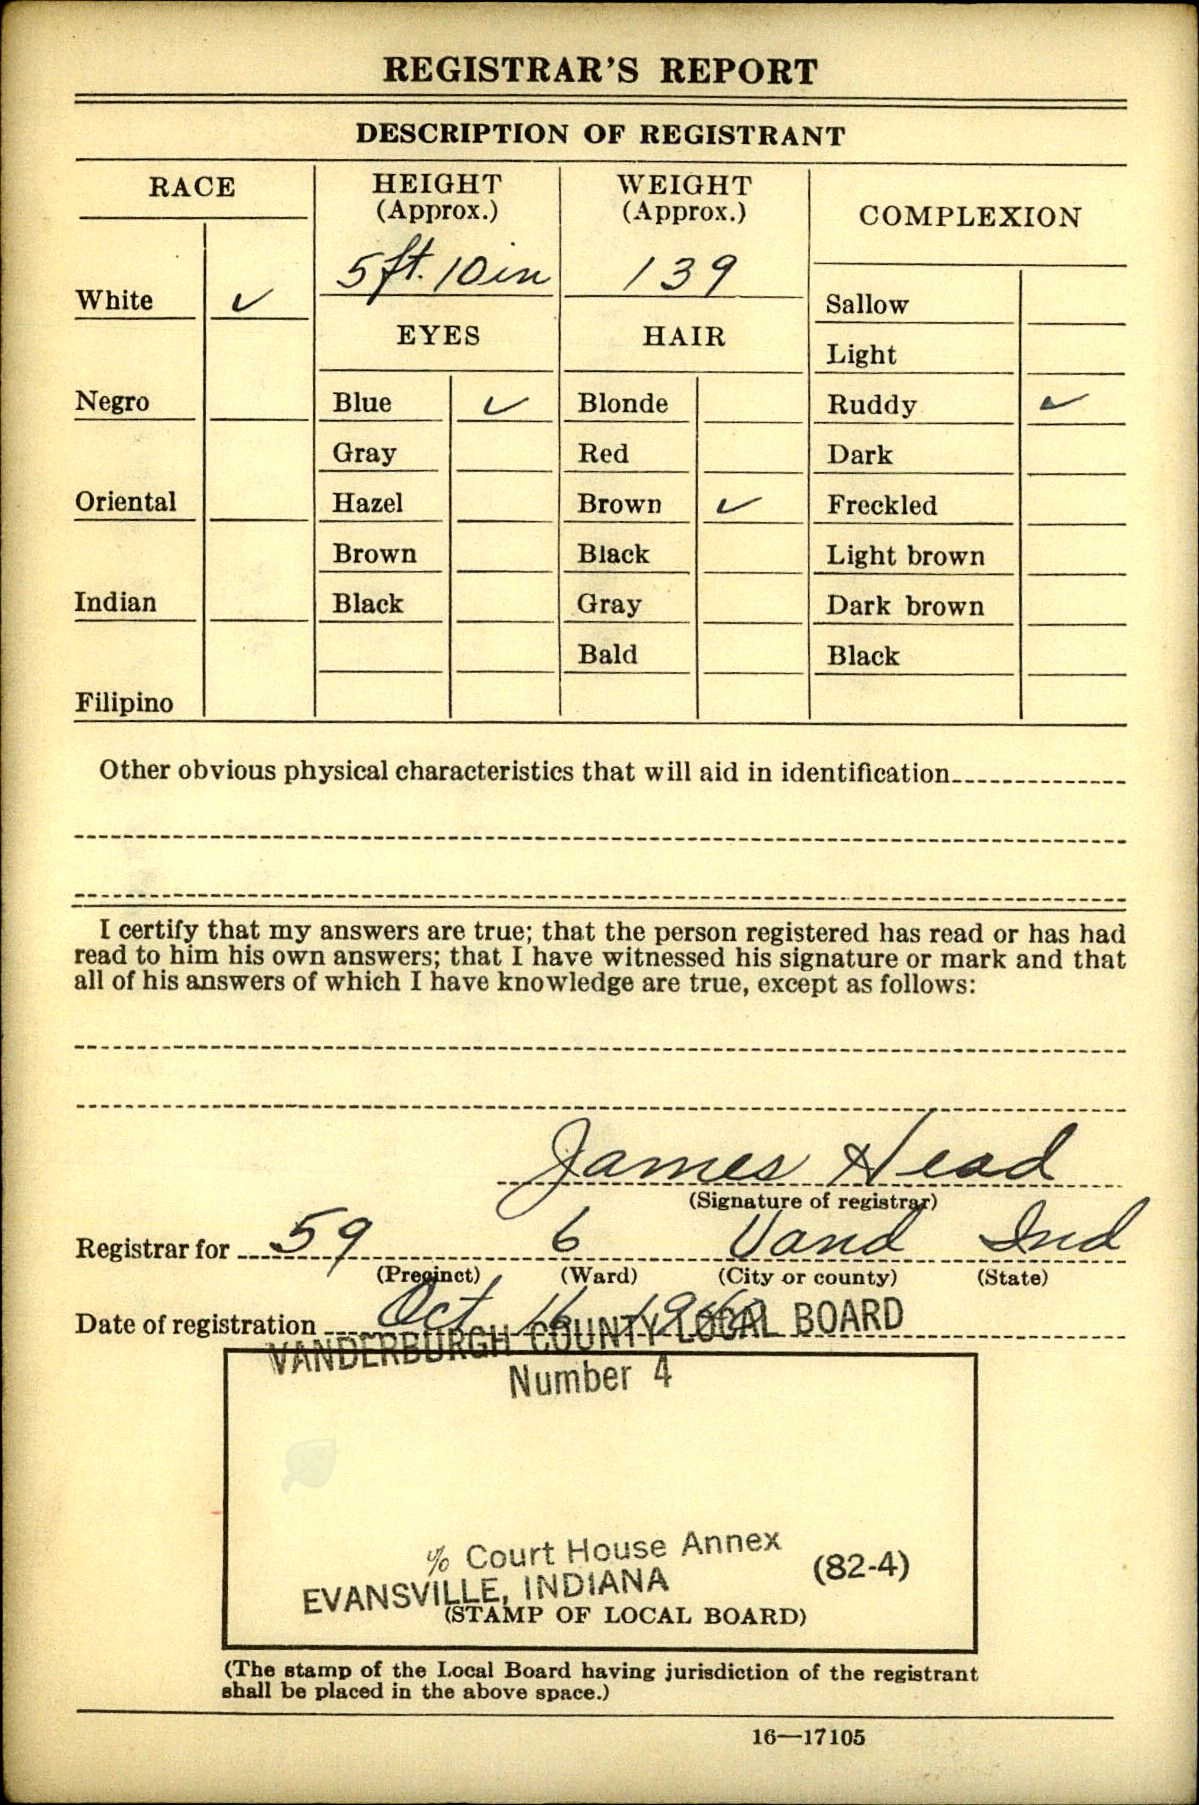 REGISTRAR'S REPORT
DESCRIPTION OF REGISTRANT
RACE
White ✓
Negro
Oriental
Indian
Filipino
HEIGHT
(Approx.)
5 ft. 10 in
EYES
Blue ✓
Gray
Hazel
Brown
Black
WEIGHT
(Approx.)
139
HAIR
Blonde
Red
Brown ✓
Black
Gray
Bald
COMPLEXION
Sallow
Light
Ruddy ✓
Dark
Freckled
Light brown
Dark brown
Black
Other obvious physical characteristics that will aid in identification
I certify that my answers are true; that the person registered has read or has had
read to him his own answers; that I have witnessed his signature or mark and that
all of his answers of which I have knowledge are true, except as follows:
James Head
(Signature of registrar)
Registrar for 59 6 Vand Ind
(Precinct) (Ward) (City or county) (State)
Date of registration Oct 16 1940
VANDERBURGH COUNTY LOCAL BOARD
Number 4
% Court House Annex
(82-4)
EVANSVILLE, INDIANA
(STAMP OF LOCAL BOARD)
(The stamp of the Local Board having jurisdiction of the registrant
shall be placed in the above space.)
16—17105